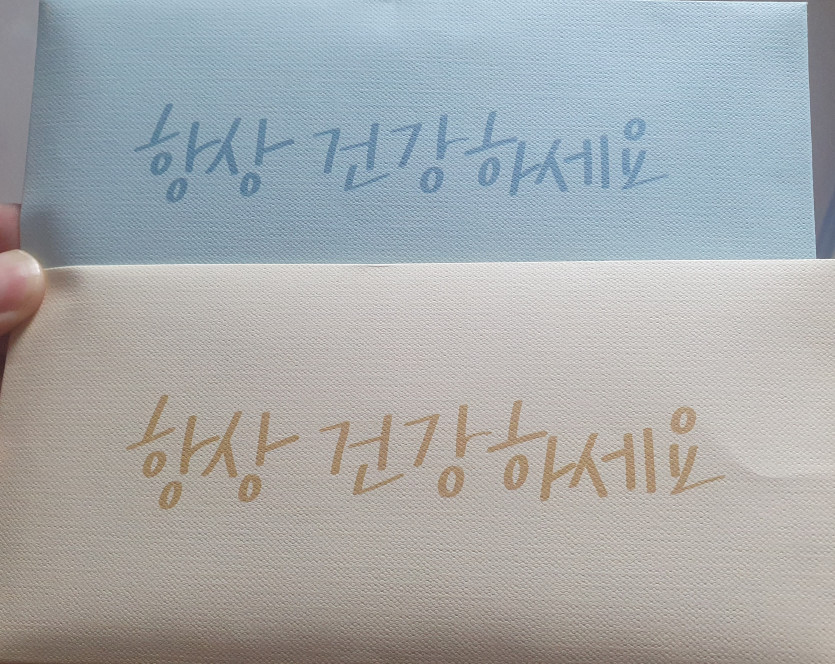 항상 건강하세요
항상 건강하세요